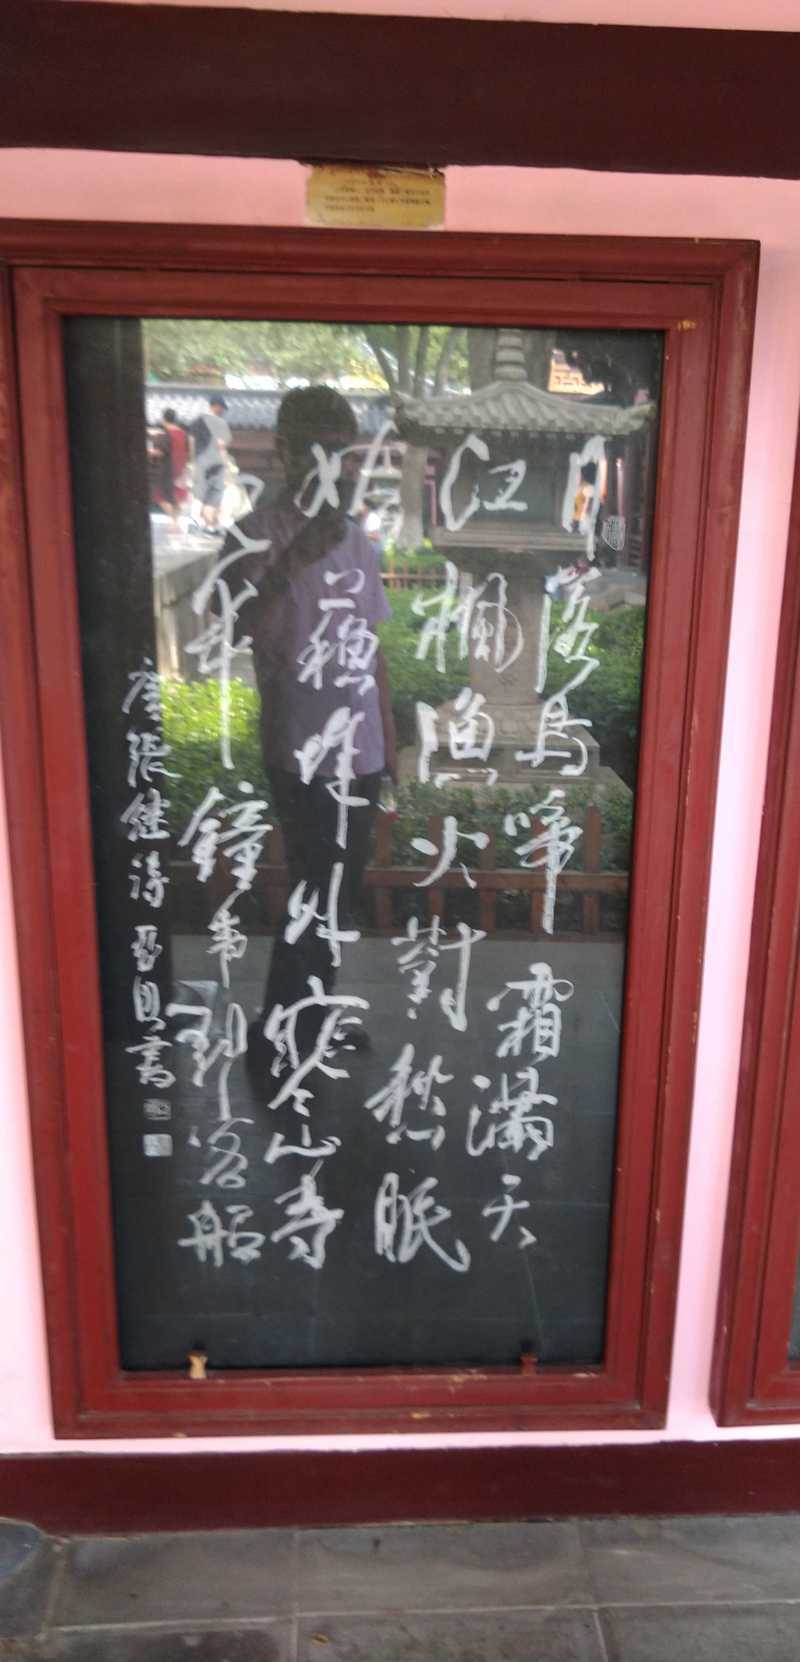 月落烏啼霜滿天
江楓漁火對愁眠
姑蘇城外寒山寺
夜半鐘声到客船
唐張继詩 書